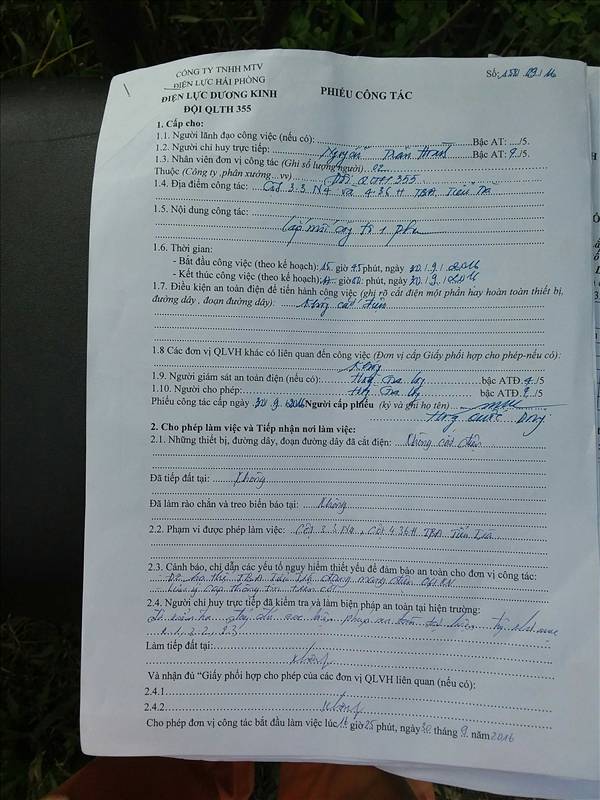 CÔNG TY TNHH MTV
ĐIỆN LỰC HẢI PHÒNG
ĐIỆN LỰC DƯƠNG KINH
ĐỘI QLTH 355
Số: /09/16
PHIẾU CÔNG TÁC
1. Cấp cho:
1.1. Người lãnh đạo công việc (nếu có): Bậc AT: /5.
1.2. Người chỉ huy trực tiếp: Nguyễn Bậc AT: /5.
1.3. Nhân viên đơn vị công tác (Ghi số lượng người) 02
Thuộc (Công ty, phân xưởng...vv) Đội QLTH 355
1.4. Địa điểm công tác: Cột 3.3 N4 và 4.36H TBA Tiểu Trà
1.5. Nội dung công tác:
Lắp mới công tơ 1 pha
1.6. Thời gian:
- Bắt đầu công việc (theo kế hoạch): 15 giờ 45 phút, ngày 30/9/2016
- Kết thúc công việc (theo kế hoạch): giờ 00 phút, ngày 30/9/2016
1.7. Điều kiện an toàn điện để tiến hành công việc (ghi rõ cắt điện một phần hay hoàn toàn thiết bị,
đường dây, đoạn đường dây): Không cắt điện
1.8 Các đơn vị QLVH khác có liên quan đến công việc (Đơn vị cấp Giấy phối hợp cho phép-nếu có):
Không
1.9. Người giám sát an toàn điện (nếu có): bậc ATĐ 4/5
1.10. Người cho phép: bậc ATĐ /5
Phiếu công tác cấp ngày 30/9/2016 Người cấp phiếu (ký và ghi họ tên)
2. Cho phép làm việc và Tiếp nhận nơi làm việc:
2.1. Những thiết bị, đường dây, đoạn đường dây đã cắt điện: Không cắt điện
Đã tiếp đất tại: Không
Đã làm rào chắn và treo biển báo tại: Không
2.2. Phạm vi được phép làm việc: Cột 3.3 N4, Cột 4.36H TBA Tiểu Trà
2.3. Cảnh báo, chỉ dẫn các yếu tố nguy hiểm thiết yếu để đảm bảo an toàn cho đơn vị công tác:
TBA Tiểu Trà đang mang điện
cáp thông tin trên cột
2.4. Người chỉ huy trực tiếp đã kiểm tra và làm biện pháp an toàn tại hiện trường:
Đã kiểm tra biện pháp an toàn
2.1, 2.2, 2.3
Làm tiếp đất tại:
Không
Và nhận đủ “Giấy phối hợp cho phép của các đơn vị QLVH liên quan (nếu có):
2.4.1
2.4.2 Không
Cho phép đơn vị công tác bắt đầu làm việc lúc giờ 25 phút, ngày 30 tháng 9 năm 2016